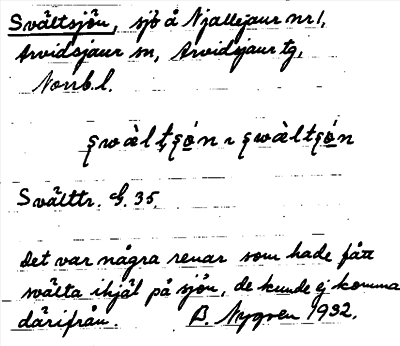 Svältsjön, sjö å Njallejaur nr 1,
Arvidsjaur sn, Arvidsjaur tg,
Norrb. l.
Svälttr. G. 35.
Det var några renar som hade fått
svälta ihjäl på sjön, de kunde ej komma
därifrån. B. Nygren 1932.